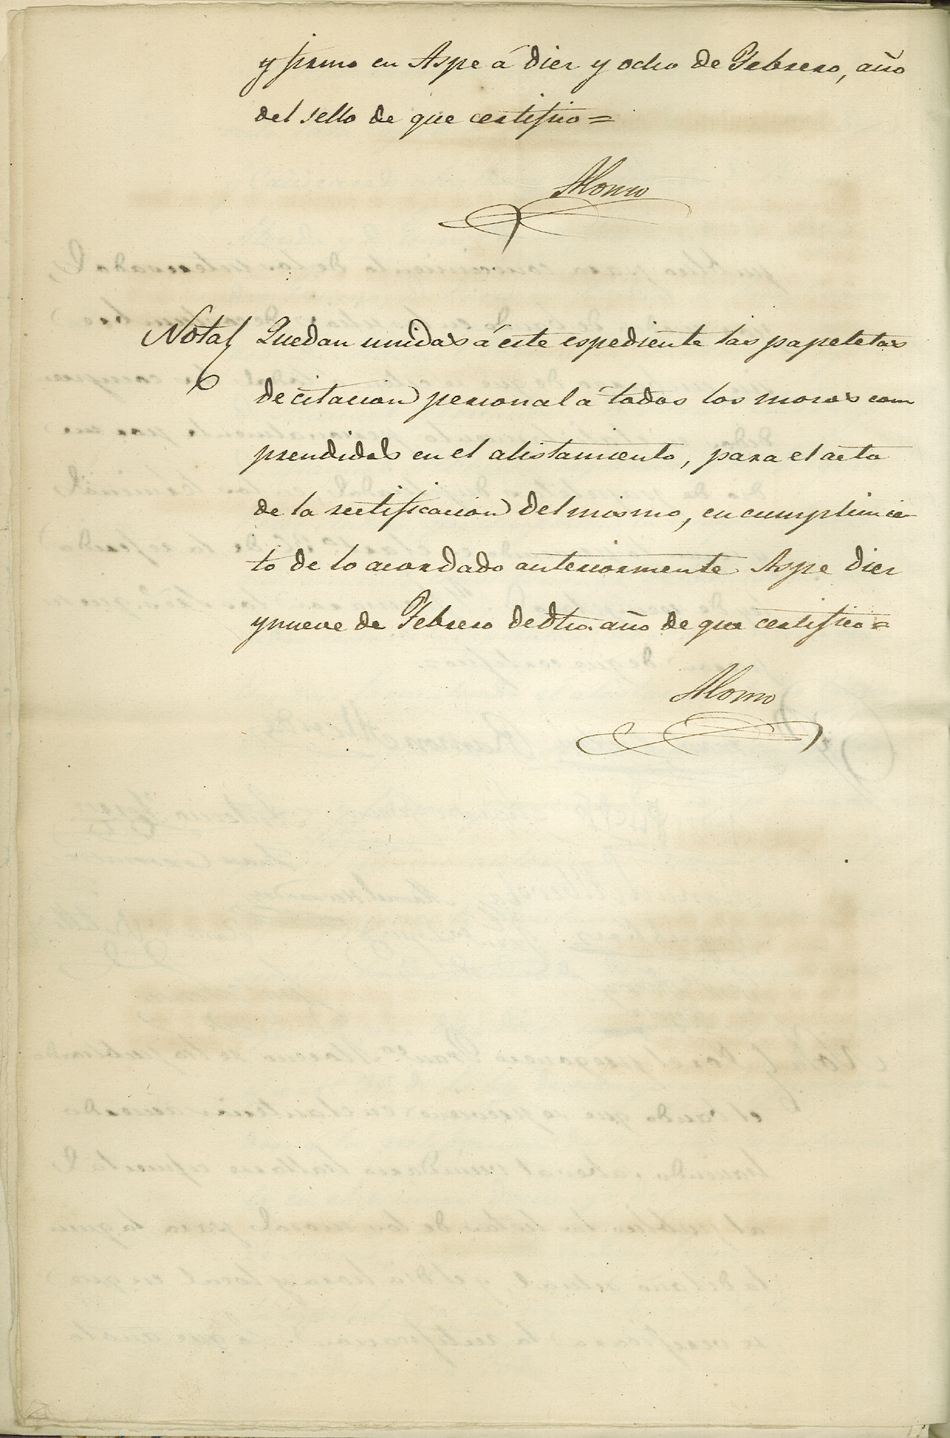 y firmo en Aspe á diez y ocho de Febrero, año
del sello de que certifico=
Alonso
Nota/ Quedan unidas á este espediente las papeletas
de citacion personal á todos los mozos com
prendidos en el alistamiento, para el acto
de la rectificacion del mismo, en cumplimien
to de lo acordado anteriormente Aspe diez
y nueve de Febrero de dho. año de que certifico=
Alonso